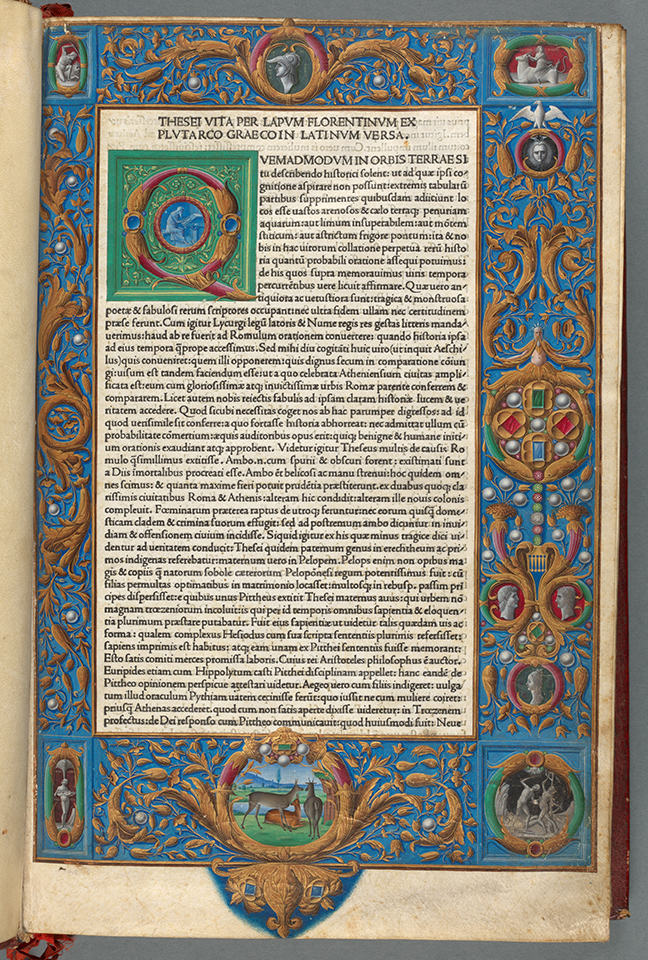 THESEI VITA PER LAPVM FLORENTINVM EX
PLVTARCO GRAECO IN LATINVM VERSA.
QVEMADMODVM IN ORBIS TERRAE SI
tu describendo historici solent: ut ad quæ ipsi co-
gnitione aspirare non possunt: extremis tabularū
partibus supprimentes quibusdam adiiciunt lo
cos esse uastos arenosos & cælo terraq; penuriam
aquarum: aut limum insuperabilem: aut mōtem
sciticum: aut astrictum frigore pontum: ita & no
bis in hac uirorum collatione perpetua rerū histo
ria quantū probabili oratione assequi potuimus:
de his quos supra memorauimus uiris tempora
percurrētibus uere licuit affirmare. Quæ uero an
tiquiora ac uetustiora sunt: tragica & monstruosa
poetæ & fabulosi rerum scriptores occupant: nec ultra fidem ullam nec certitudinem
præ se ferunt. Cum igitur Lycurgi legū latoris & Numæ regis res gestas litteris manda
uerimus: haud ab re fuerit ad Romulum orationem conuertere: quando historia ipsa
ad eius tempora q̃ prope accessimus. Sed mihi diu cogitāti huic uiro (ut inquit Aeschi
lus) quis conueniret: quem illi opponerem: quis dignus secum in comparatione cōiun
gi: uisum est tandem faciendum esse: ut a quo celebrata Atheniensium ciuitas ampli
ficata est: eum cum gloriosissimæ atq; inuictissimæ urbis Romæ parente conferrem &
compararem. Licet autem nobis reiectis fabulis ad ipsam claram historiæ lucem & ue
ritatem accedere. Quod sicubi necessitas coget nos ab hac parumper digressos: ad id
quod uerisimile sit conferre: a quo fortasse historia abhorreat: nec admittat ullum cū
probabilitate cōmertium: æquis auditoribus opus erit: quiq; benigne & humane initi
um orationis exaudiant atq; approbent. Videtur igitur Theseus multis de causis Ro
mulo q̃simillimus extitisse. Ambo.n.cum spurii & obscuri forent: existimati sunt
a Diis īmortalibus procreati esse. Ambo ēt belicosi ac manu strenui: hoc quidem om
nes scimus: & quanta maxime fieri potuit prudētia præstiterunt. ex duabus quoq; cla
rissimis ciuitatibus Roma & Athenis: alteram hic condidit: alteram ille nouis colonis
compleuit. Fœminarum præterea raptus de utroq; feruntur: nec eorum quisq̃ dome
sticam cladem & crimina suorum effugit: sed ad postremum ambo dicuntur in inui
diam & offensionem ciuium incidisse. Siquid igitur ex his quæ minus tragice dici ui
dentur ad ueritatem conducit: Thesei quidem paternum genus in erechtheum ac pri
mos indigenas referebatur: maternum uero in Pelopem. Pelops enim non opibus ma
gis & copiis q̃ natorum sobole cæterorum Peloponēsi regum potentissimus fuit: cū
filias permultas optimatibus in matrimonio locasset: multosq; in rebusp. passim prī
cipes dispersisset: e quibus unus Pittheus extitit Thesei maternus auus: qui urbem nō
magnam trœzeniorum incoluit: is qui per id temporis omnibus sapientia & eloquen
tia plurimum præstare putabatur. Fuit eius sapientiæ ut uidetur talis quædam uis ac
forma: qualem complexus Hesiodus cum sua scripta sententiis plurimis refersisset:
sapiens imprimis est habitus: atq; eam unam ex Pitthei sententiis fuisse memorant:
Esto satis comiti merces promissa laboris. Cuius rei Aristoteles philosophus ē auctor.
Euripides etiam cum Hippolytum casti Pitthei disciplinam appellet: hanc eandē de
Pittheo opinionem perspicue attestari uidetur. Aegeo uero cum filiis indigeret: uulga
tum illud oraculum Pythiam uatem cecinisse ferūt: quo iussit ne cum muliere coiret:
priusq̃ Athenas accederet. quod cum non satis aperte dixisse uideretur: in Trœzenem
profectus: de Dei responso cum Pittheo communicauit: quod huiusmodi fuit: Neue